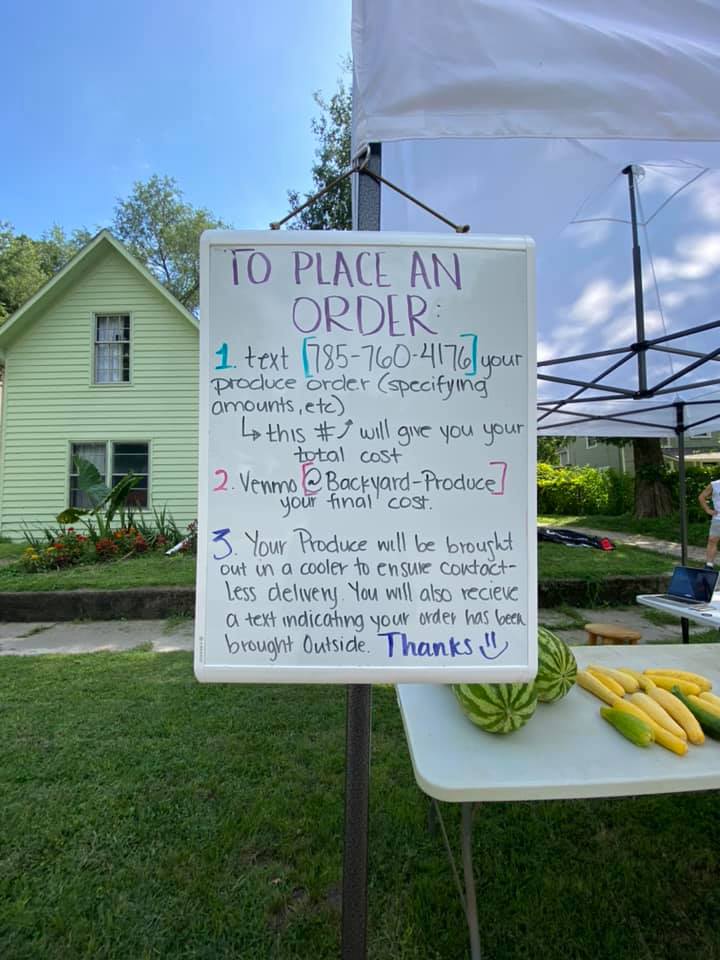 TO PLACE AN
ORDER:
1. text [785-760-4176] your
produce order (specifying
amounts, etc)
↳ this #⤴ will give you your
total cost
2. Venmo [@Backyard-Produce]
your final cost.
3. Your Produce will be brought
out in a cooler to ensure contact-
less delivery. You will also recieve
a text indicating your order has been
brought Outside. Thanks !!